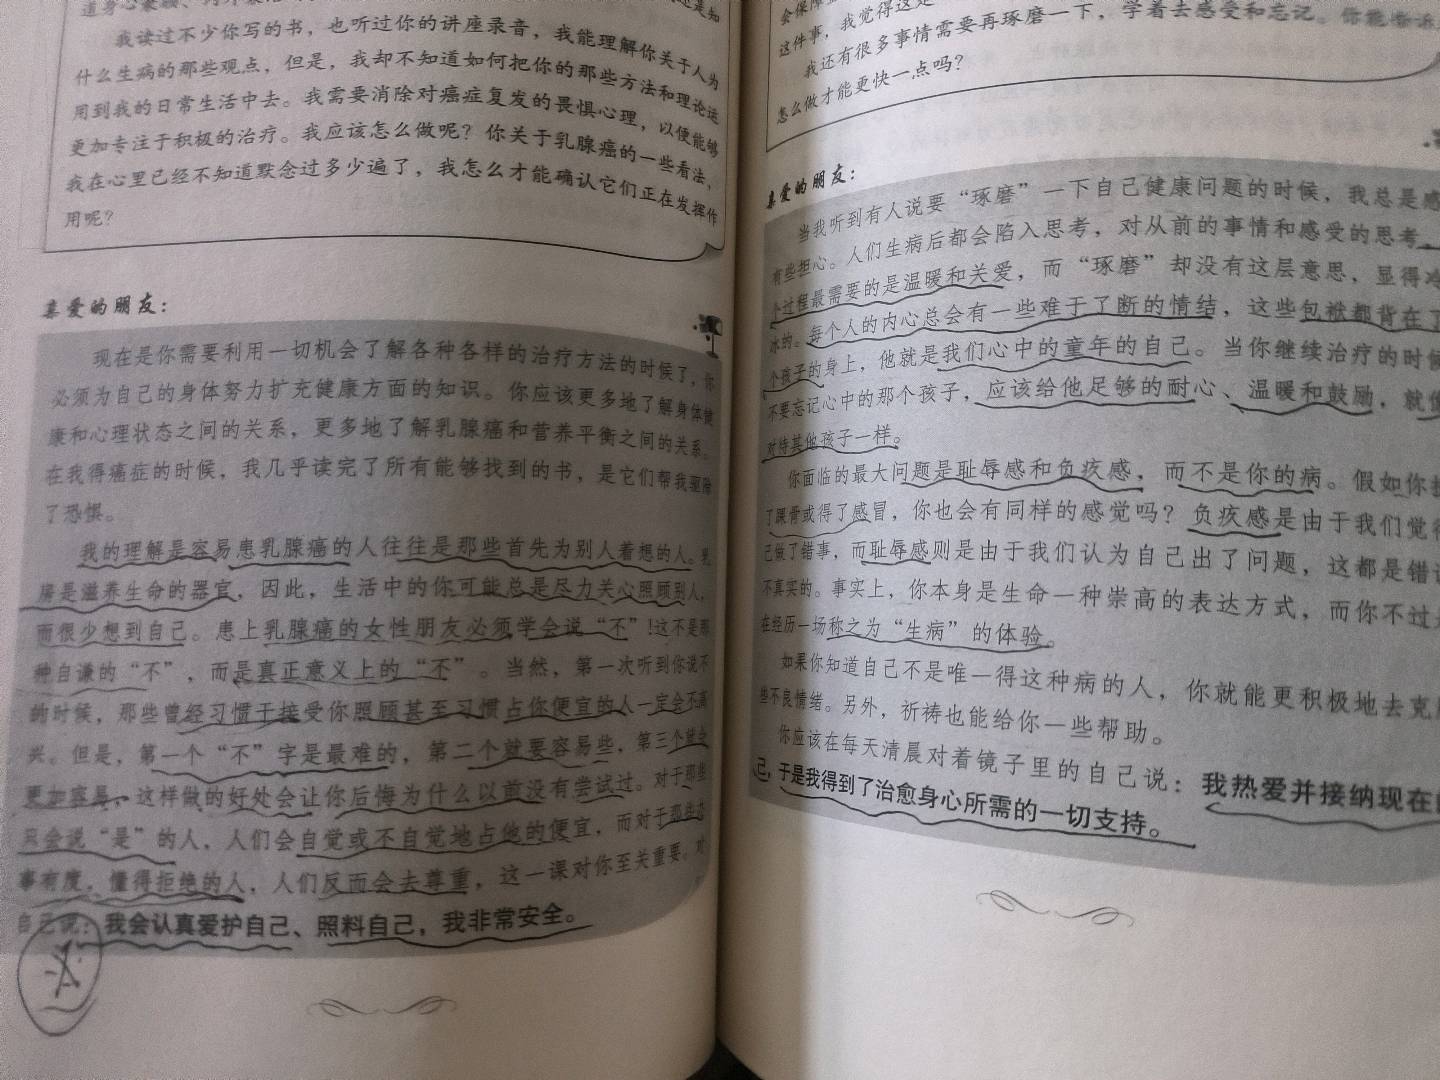 我读过不少你写的书，也听过你的讲座录音，我能理解你关于人为
什么生病的那些观点，但是，我却不知道如何把你的那些方法和理论运
用到我的日常生活中去。我需要消除对癌症复发的畏惧心理，以便能够
更加专注于积极的治疗。我应该怎么做呢？你关于乳腺癌的一些看法，
我在心里已经不知道默念过多少遍了，我怎么才能确认它们正在发挥作
用呢？
亲爱的朋友：
现在是你需要利用一切机会了解各种各样的治疗方法的时候了，你
必须为自己的身体努力扩充健康方面的知识。你应该更多地了解身体健
康和心理状态之间的关系，更多地了解乳腺癌和营养平衡之间的关系。
在我得癌症的时候，我几乎读完了所有能够找到的书，是它们帮我驱除
了恐惧。
我的理解是容易患乳腺癌的人往往是那些首先为别人着想的人。乳
房是滋养生命的器官，因此，生活中的你可能总是尽力关心照顾别人，
而很少想到自己。患上乳腺癌的女性朋友必须学会说“不”！这不是那
种自谦的“不”，而是真正意义上的“不”。当然，第一次听到你说不
的时候，那些曾经习惯于接受你照顾甚至习惯占你便宜的人一定会不高
兴。但是，第一个“不”字是最难的，第二个就要容易些，第三个就会
更加容易，这样做的好处会让你后悔为什么以前没有尝试过。对于那些
只会说“是”的人，人们会自觉或不自觉地占他的便宜，而对于那些办
事有度，懂得拒绝的人，人们反而会去尊重，这一课对你至关重要。对
自己说：我会认真爱护自己、照料自己，我非常安全。
这件事，我觉得这是
我还有很多事情需要再琢磨一下，学着去感受和忘记。你能告诉
怎么做才能更快一点吗？
亲爱的朋友：
当我听到有人说要“琢磨”一下自己健康问题的时候，我总是感
有些担心。人们生病后都会陷入思考，对从前的事情和感受的思考，
个过程最需要的是温暖和关爱，而“琢磨”却没有这层意思，显得冷
冰的。每个人的内心总会有一些难于了断的情结，这些包袱都背在了
个孩子的身上，他就是我们心中的童年的自己。当你继续治疗的时候
不要忘记心中的那个孩子，应该给他足够的耐心、温暖和鼓励，就像
对待其他孩子一样。
你面临的最大问题是耻辱感和负疚感，而不是你的病。假如你折
了踝骨或得了感冒，你也会有同样的感觉吗？负疚感是由于我们觉得
己做了错事，而耻辱感则是由于我们认为自己出了问题，这都是错误
不真实的。事实上，你本身是生命一种崇高的表达方式，而你不过是
在经历一场称之为“生病”的体验。
如果你知道自己不是唯一得这种病的人，你就能更积极地去克服
些不良情绪。另外，祈祷也能给你一些帮助。
你应该在每天清晨对着镜子里的自己说：我热爱并接纳现在的
己，于是我得到了治愈身心所需的一切支持。